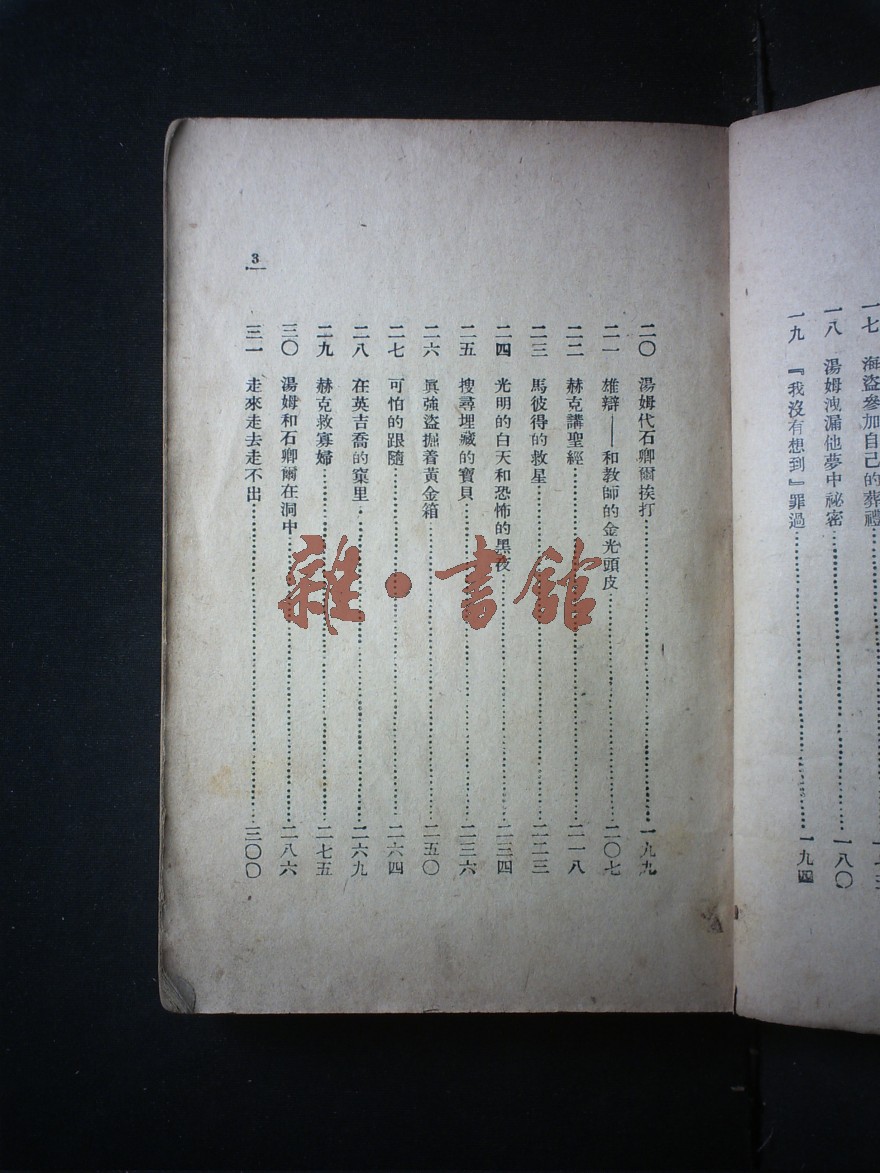 一七 海盜參加自己的葬禮
一八 湯姆洩漏他夢中祕密……一八〇
一九 『我沒有想到』罪過……一九四
二〇 湯姆代石卿爾挨打……一九九
二一 雄辯——和教師的金光頭皮……二〇七
二二 赫克講聖經……二一八
二三 馬彼得的救星……二二三
二四 光明的白天和恐怖的黑夜……二三四
二五 搜尋埋藏的寶貝……二三六
二六 眞強盜掘着黃金箱……二五〇
二七 可怕的跟隨……二六四
二八 在英吉喬的窠里……二六九
二九 赫克救寡婦……二七五
三〇 湯姆和石卿爾在洞中……二八六
三一 走來走去走不出……三〇〇
3
雜·書館